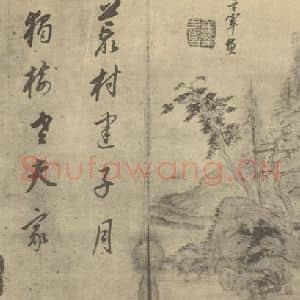 荒村建子月
獨樹老夫家
Shufawang.CN